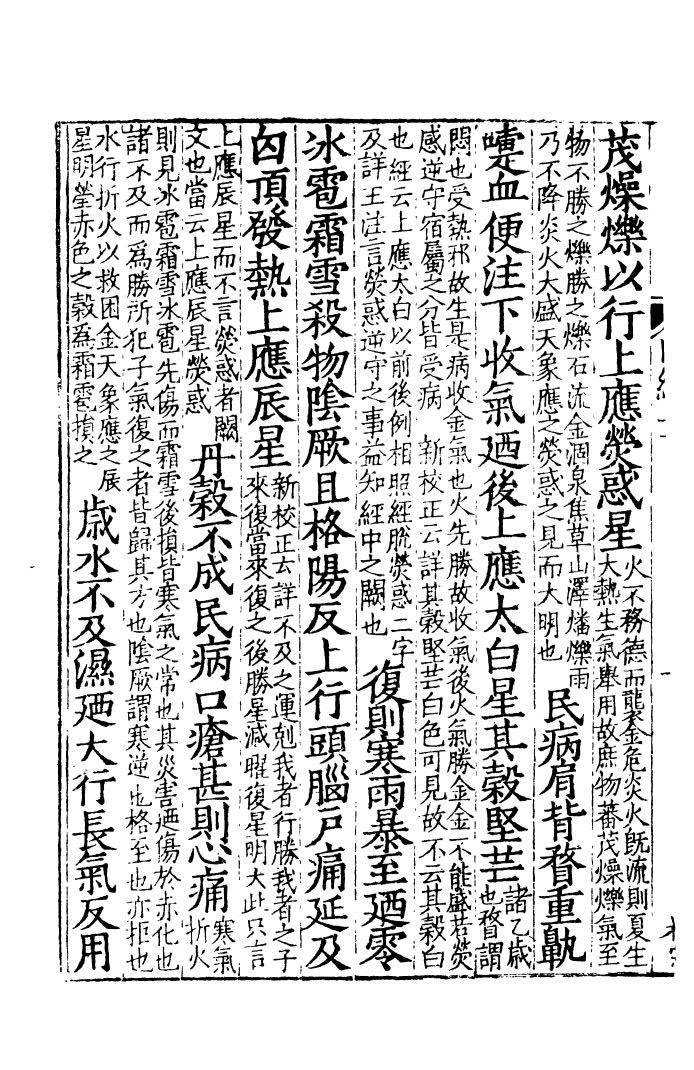 茂燥爍以行上應熒惑星
火不務德而襲金危炎火旣流則夏生
大熱生氣舉用故庶物蕃茂燥爍氣至
物不勝之爍勝之爍石流金涸泉焦草山澤燔爍雨
乃不降炎火大盛天象應之熒惑之見而大明也
民病肩背瞀重鼽
嚏血便注下收氣廼後上應太白星其穀堅芒
諸乙歲
也瞀謂
悶也受熱邪故生是病收金氣也火先勝故收氣後火氣勝金金不能盛若熒
惑逆守宿屬之分皆受病　新校正云詳其穀堅芒白色可見故不云其穀白
也經云上應太白以前後例相照經脫熒惑二字
及詳王注言熒惑逆守之事益知經中之闕也
復則寒雨暴至廼零
冰雹霜雪殺物陰厥且格陽反上行頭腦戶痛延及
囟頂發熱上應辰星
新校正云詳不及之運剋我者行勝我者之子
來復當來復之後勝星減曜復星明大此只言
上應辰星而不言熒惑者闕
文也當云上應辰星熒惑
丹穀不成民病口瘡甚則心痛
寒氣
折火
則見冰雹霜雪冰雹先傷而霜雪後損皆寒氣之常也其災害廼傷於赤化也
諸不及而爲勝所犯子氣復之者皆歸其方也陰厥謂寒逆也格至也亦拒也
水行折火以救困金天象應之辰
星明瑩赤色之穀爲霜雹損之
歲水不及濕廼大行長氣反用